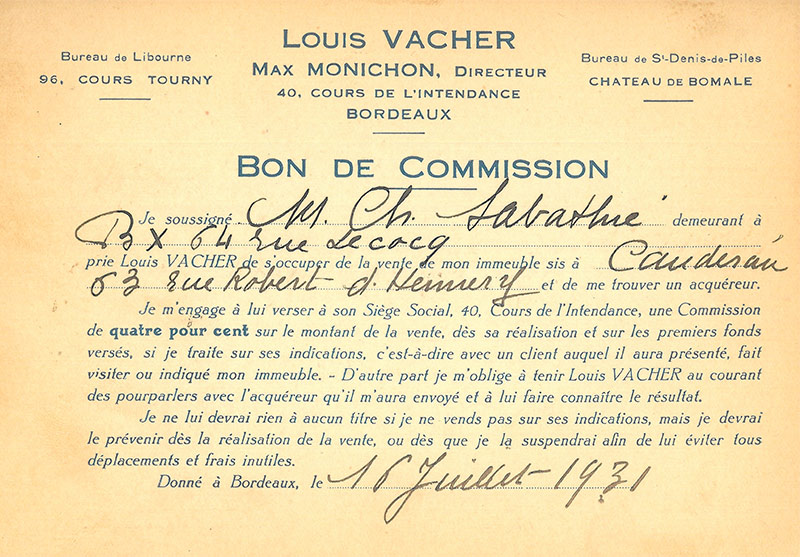 Louis VACHER
Max MONICHON, Directeur
40, COURS DE L'INTENDANCE
BORDEAUX
Bureau de Libourne
96, COURS TOURNY
Bureau de St-Denis-de-Piles
CHATEAU DE BOMALE
BON DE COMMISSION
Je soussigné M. Ch. Sabathié demeurant à
Bx 64 rue Lecocq
prie Louis VACHER de s'occuper de la vente de mon immeuble sis à Caudéran
63 rue Robert d. Hennery et de me trouver un acquéreur.
Je m'engage à lui verser à son Siège Social, 40, Cours de l'Intendance, une Commission
de quatre pour cent sur le montant de la vente, dès sa réalisation et sur les premiers fonds
versés, si je traite sur ses indications, c'est-à-dire avec un client auquel il aura présenté, fait
visiter ou indiqué mon immeuble. - D'autre part je m'oblige à tenir Louis VACHER au courant
des pourparlers avec l'acquéreur qu'il m'aura envoyé et à lui faire connaître le résultat.
Je ne lui devrai rien à aucun titre si je ne vends pas sur ses indications, mais je devrai
le prévenir dès la réalisation de la vente, ou dès que je la suspendrai afin de lui éviter tous
déplacements et frais inutiles.
Donné à Bordeaux, le 16 Juillet 1931